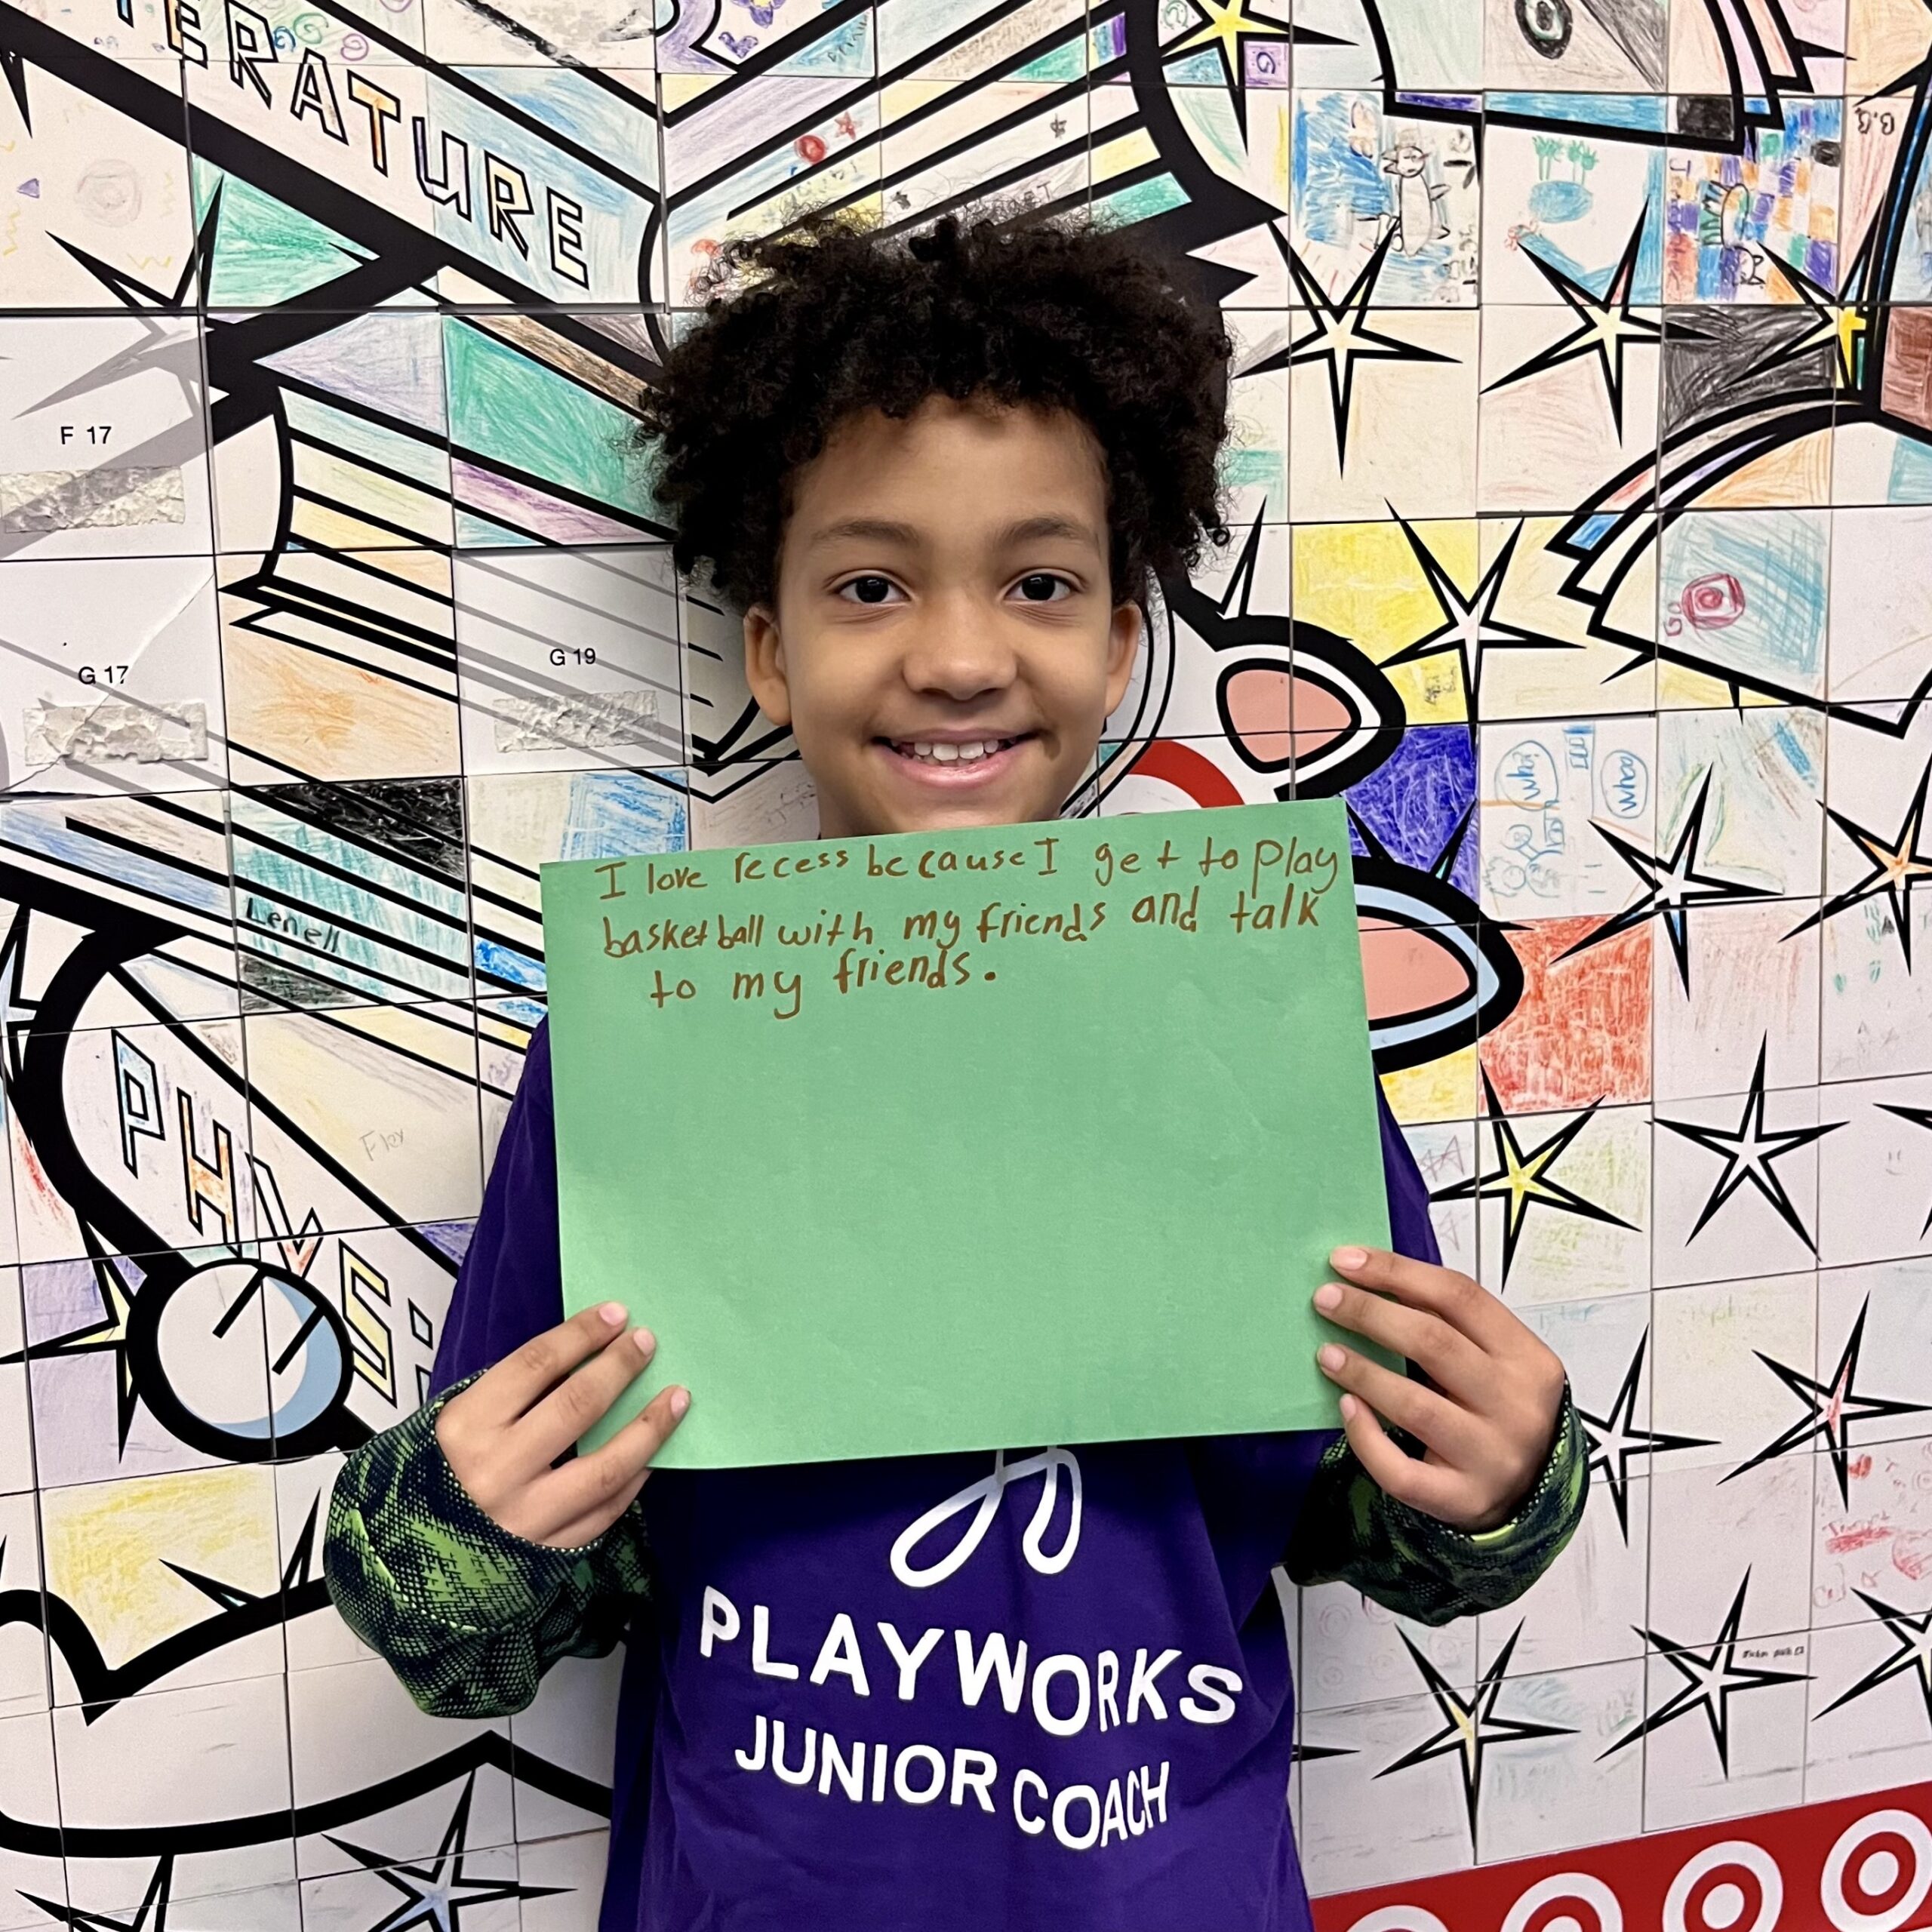 ERATURE
F 17
G 17
G 19
Why
Who
Lenell
I love recess because I get to play
basketball with my friends and talk
to my friends.
PHYSi
Flex
PLAYWORKS
JUNIOR COACH